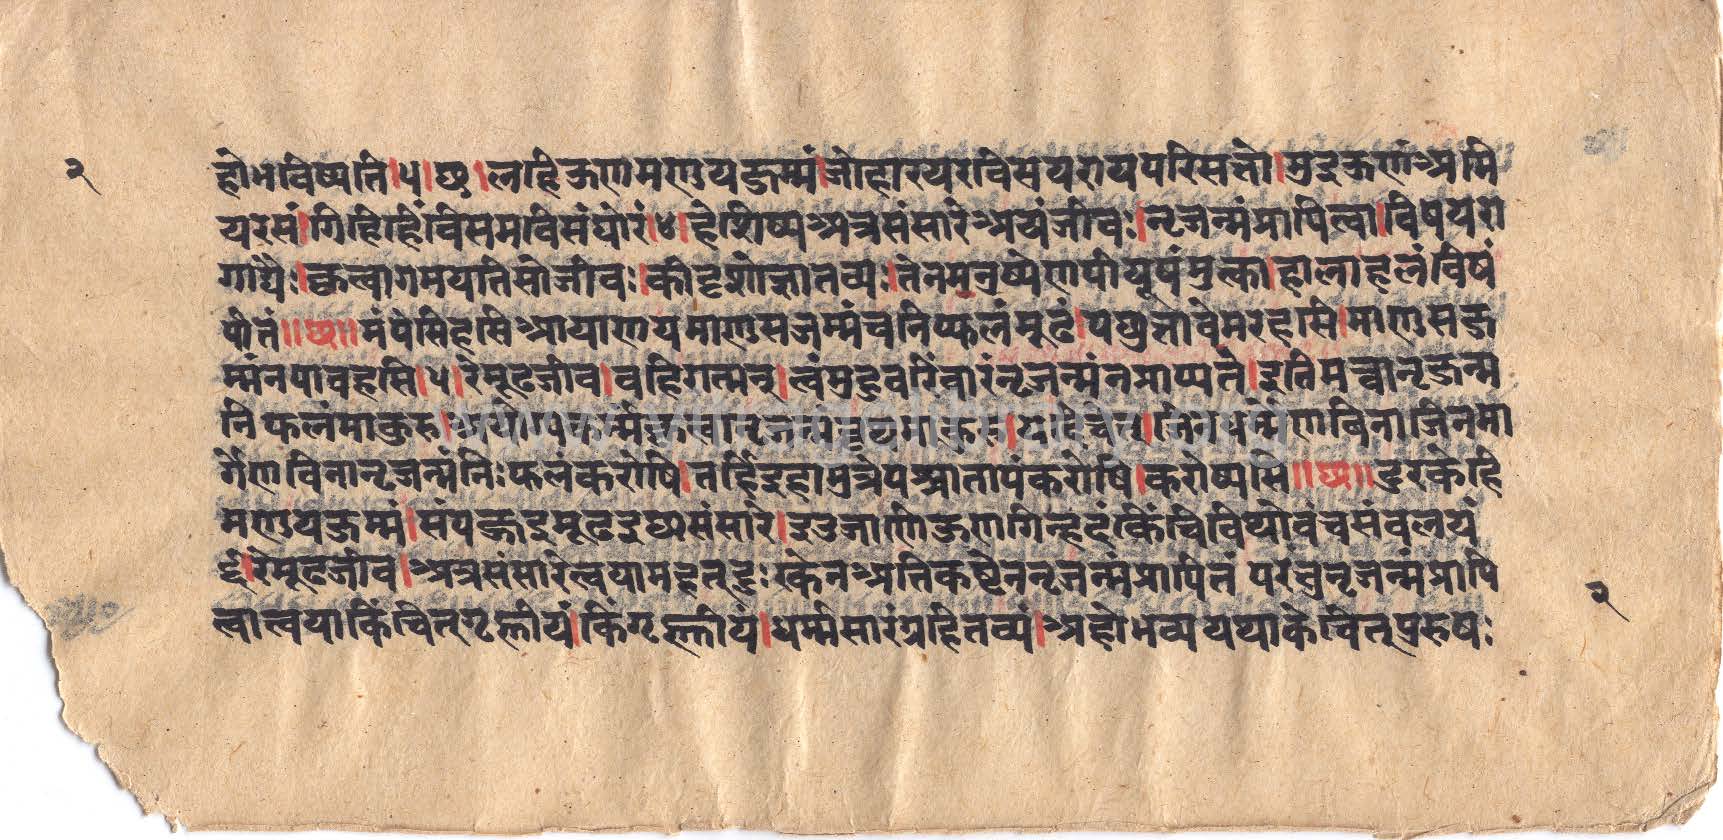 २
होभविष्यति।५।छ।लहिऊणमणुयजम्मं।जोहारयरविसयरायपरिसत्तो।मुइऊणअमि
यरसं।गिहिहिंविसमविसंघोरं।४।हेशिष्यअत्रसंसारेअयंजीवः।नृजन्मंप्रापित्वा।विषयरा
गांधैः।कृत्वागमयतिसोजीवः।कीदृशोज्ञातव्यः।तेनमनुष्येणपीयूषंमुत्का।हालाहलंविषं
पीतं॥छ॥मंपेसिहसिआयाणयमाणुसजम्मंचनिप्फलंमूढं।पछुतावेमरहसि।माणुसज
म्मंनपावहसि।५।रेमूढजीव।वहिगत्मन्।त्वंमुहुर्वारिंवारंनृजन्मंनप्राप्यते।इतिमत्वानृजन्म
निफलंमाकुरु।
र्गेणविनानृजन्मंनिःफलंकरोषि।तर्हिइहामुत्रेपश्चातापंकरोषि।करोष्यसि॥छ॥दुरकेहि
मणुयजम्मं।संपज्जइमूढइछसंसारे।इउजाणिऊणगिन्हदंकिंचिविथोवंचसंवलयं
६।रेमूढजीव।अत्रसंसारेत्वयामहत्दुःखेनअतिकष्टेननृजन्मंप्रापितंपरंतुनृजन्मंप्रापि
त्वात्वयाकिंचित्गृह्णीयं।किंगृह्णीयं।धर्म्मसारंग्रहितव्यं।अहोभव्ययथाकेचित्पुरुषः
२
www.vitragelibrary.org